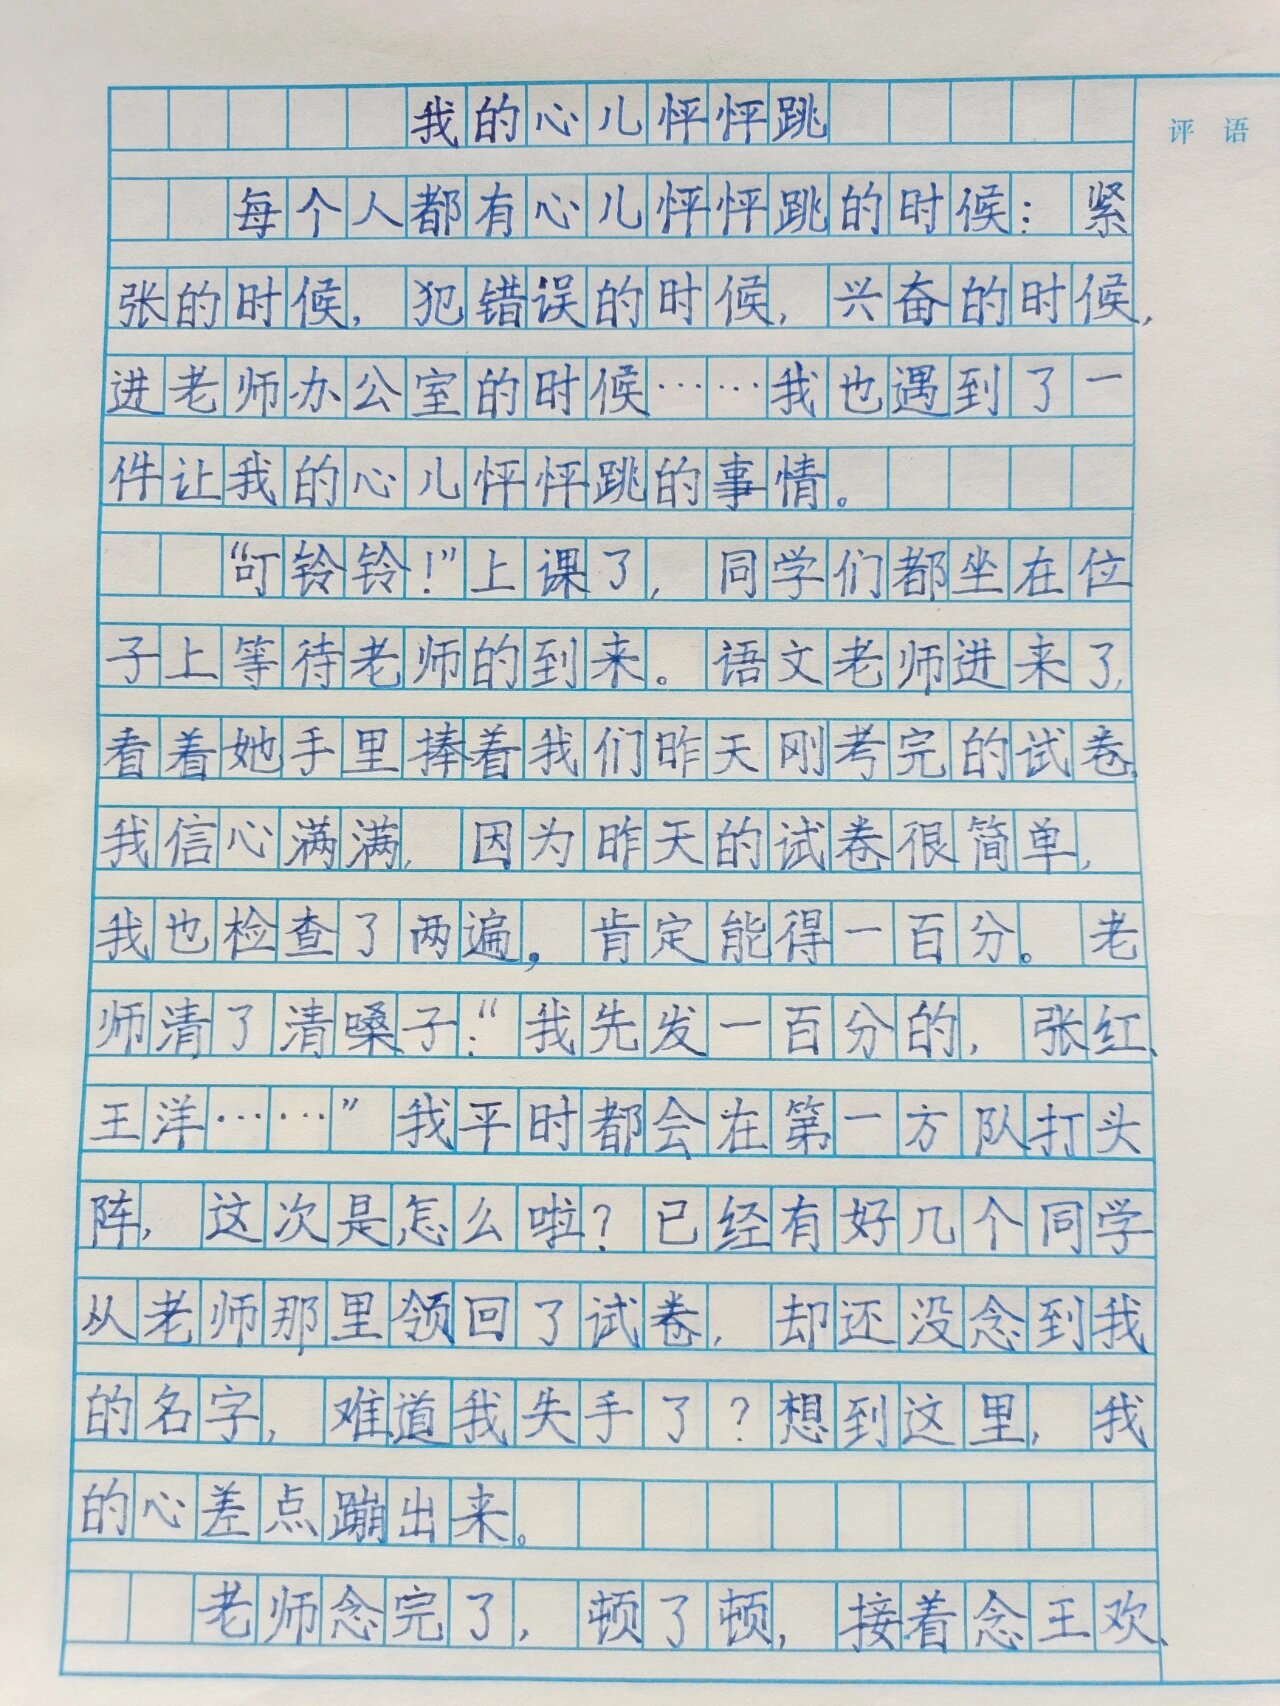 我的心儿怦怦跳
评语
每个人都有心儿怦怦跳的时候：紧
张的时候，犯错误的时候，兴奋的时候，
进老师办公室的时候……我也遇到了一
件让我的心儿怦怦跳的事情。
“叮铃铃！”上课了，同学们都坐在位
子上等待老师的到来。语文老师进来了，
看着她手里捧着我们昨天刚考完的试卷，
我信心满满，因为昨天的试卷很简单，
我也检查了两遍，肯定能得一百分。老
师清了清嗓子：“我先发一百分的，张红、
王洋……”我平时都会在第一方队打头
阵，这次是怎么啦？已经有好几个同学
从老师那里领回了试卷，却还没念到我
的名字，难道我失手了？想到这里，我
的心差点蹦出来。
老师念完了，顿了顿，接着念王欢、